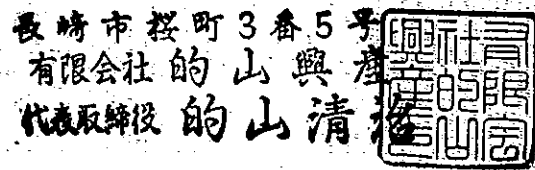 長崎市桜町3番5号
有限会社 的山興産
代表取締役 的山清
有限会社的山興産